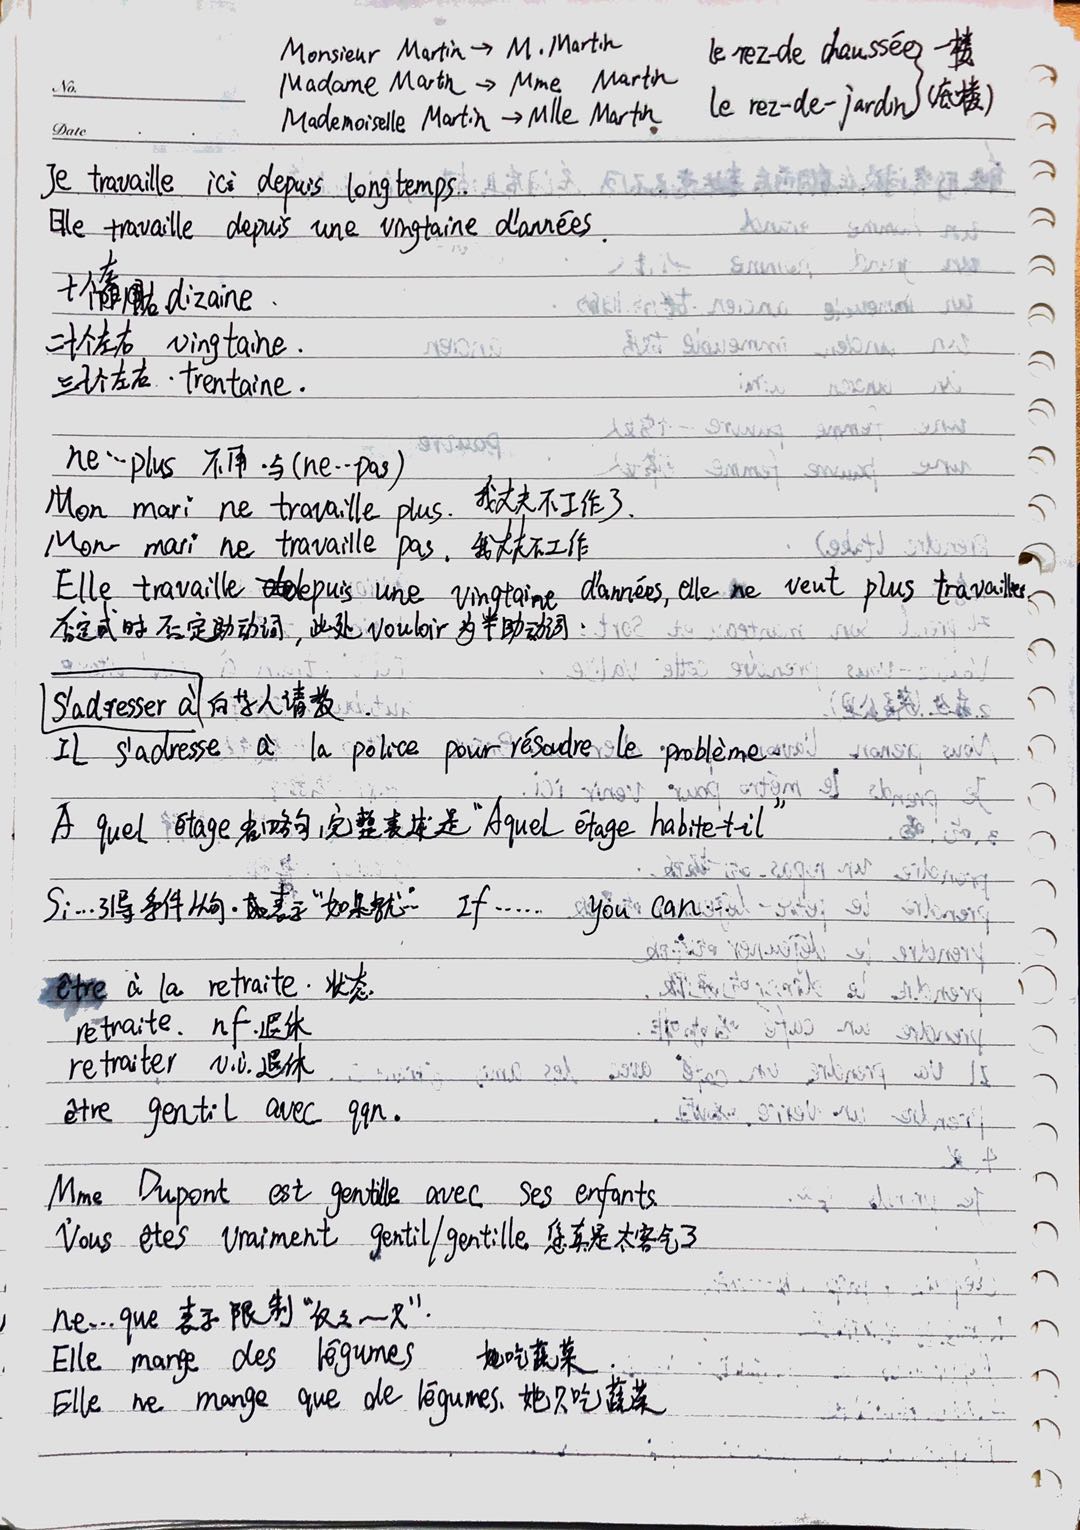 Monsieur Martin → M. Martin
Madame Martin → Mme Martin
Mademoiselle Martin → Mlle Martin.
le rez-de chaussée 一楼
le rez-de-jardin (底楼)
No.
Date
Je travaille ici depuis longtemps.
Elle travaille depuis une vingtaine d'années.
十个左右 dizaine.
二十个左右 vingtaine.
三十个左右 · trentaine.
ne…plus 不再 · 与(ne…pas)
Mon mari ne travaille plus. 我丈夫不工作了.
Mon mari ne travaille pas. 我丈夫不工作
Elle travaille depuis une vingtaine d'années, elle ne veut plus travailler
否定式时否定助动词, 此处 vouloir 为半助动词.
S'adresser à 向某人请教.
Il s'adresse à la police pour résoudre le problème.
A quel étage 省略句, 完整表述是 "A quel étage habite-t-il"
Si…引导条件从句. 表示"如果就… If …… you can.
être à la retraite. 状态.
retraite. nf. 退休
retraiter v.i. 退休
être gentil avec qqn.
Mme Dupont est gentille avec ses enfants.
Vous êtes vraiment gentil/gentille. 您真是太客气了
ne…que 表示限制 "仅仅一只".
Elle mange des légumes 她吃蔬菜.
Elle ne mange que de légumes. 她只吃蔬菜